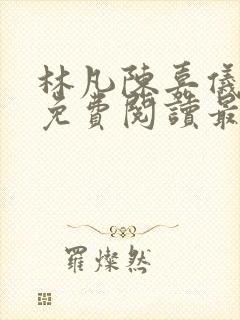 林凡陳嘉儀
免費閱讀最
羅燦然